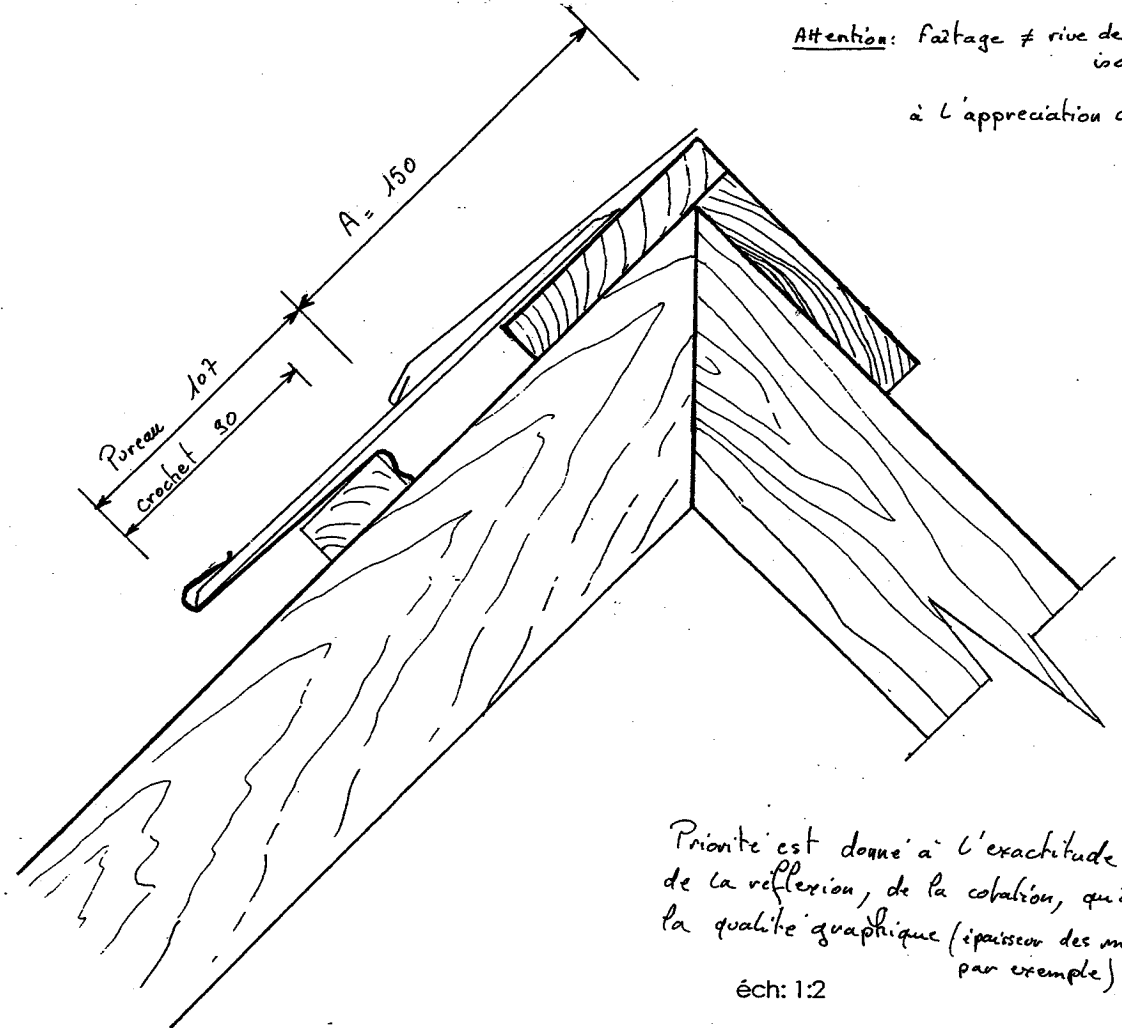 Attention: Faîtage ≠ rive de
à l'appreciation
A = 150
Pureau 107
crochet 90
Priorité est donné à l'exactitude
de la réflexion, de la cotation,
la qualité graphique (épaisseur des
par exemple)
éch: 1:2